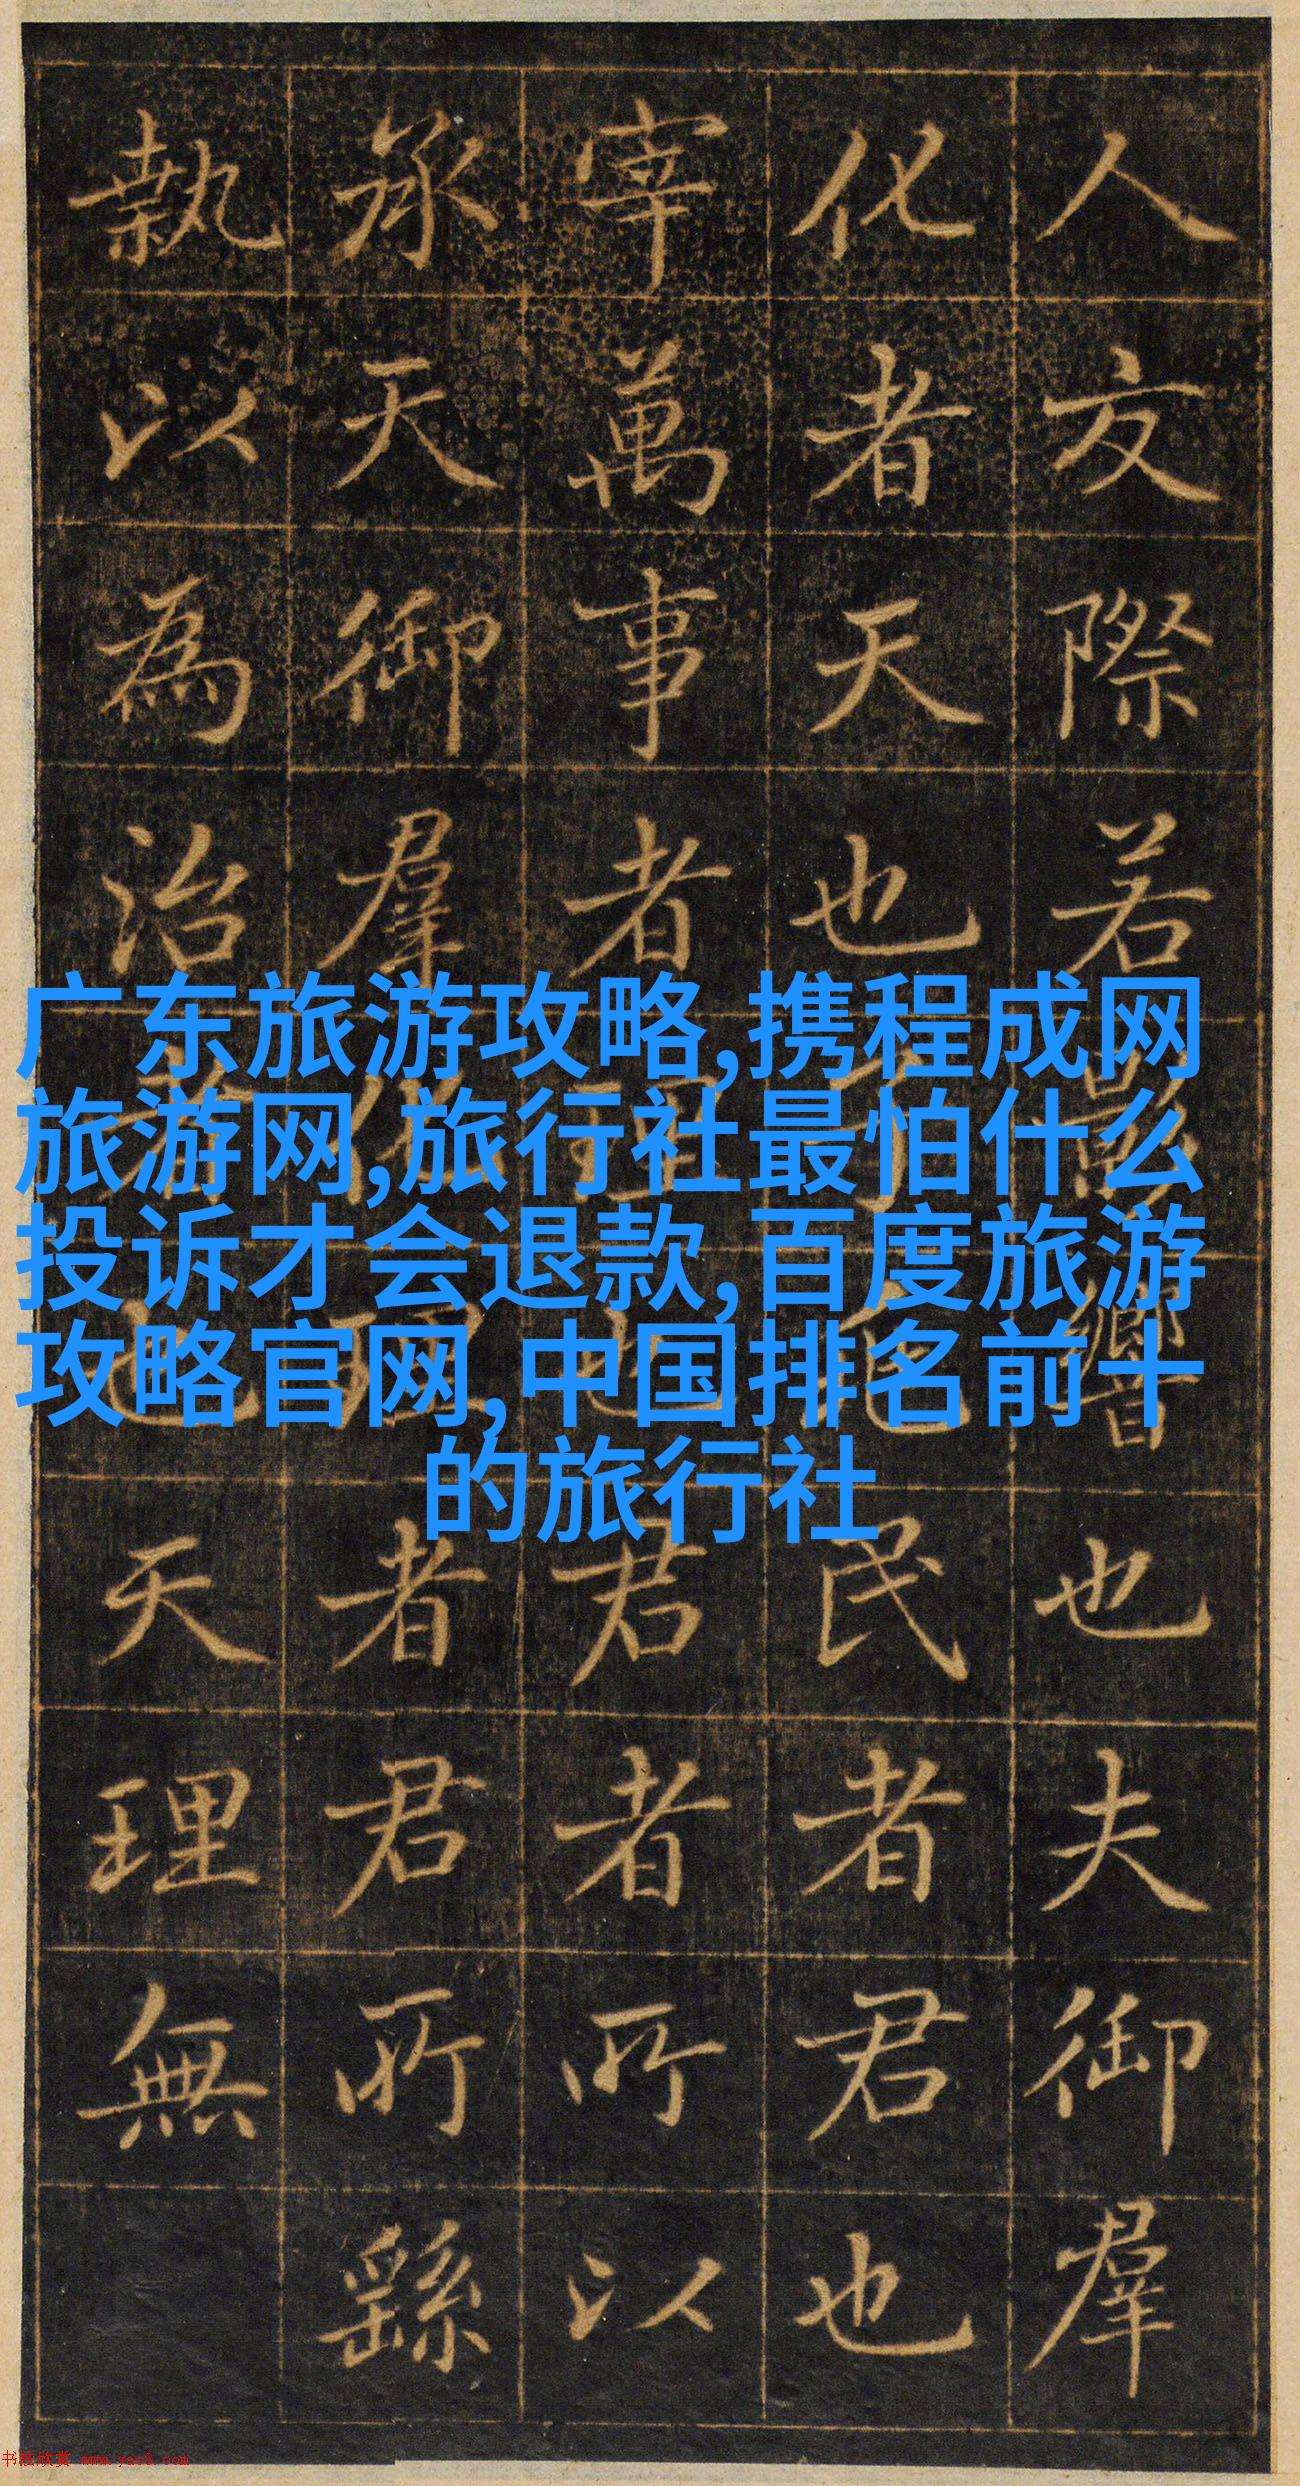 人交際若影響也夫御羣
化者天也民者君也
宰萬事者理也君者所以
承天御羣理者君所繇
執以為治者也天理無
广东旅游攻略,携程成网
旅游网,旅行社最怕什么
投诉才会退款,百度旅游
攻略官网,中国排名前十
的旅行社
书法欣赏 www.yac8.com